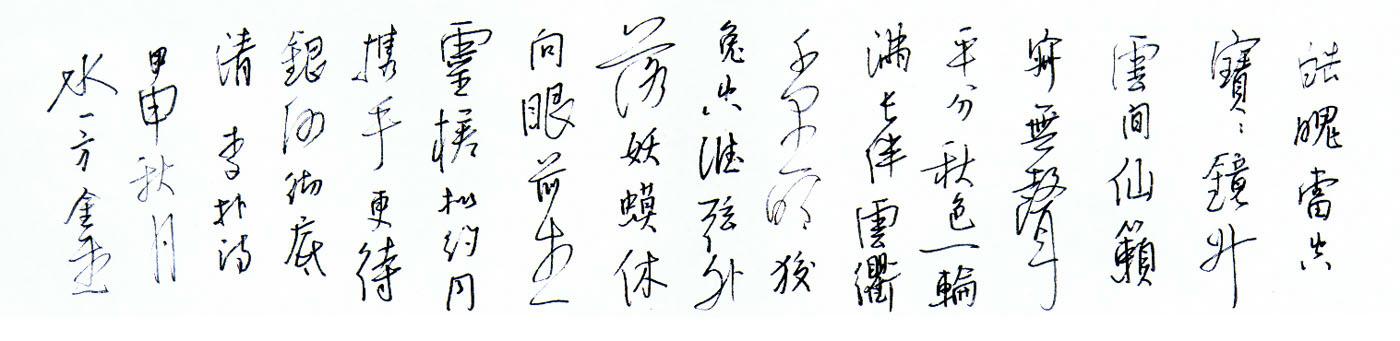 皓魄當空
寶鏡升
雲間仙籟
寂無聲
平分秋色一輪
滿長伴雲衢
千里明狡
兔空從弦外
落妖蟆休
向眼前生
靈槎擬約同
携手更待
銀河徹底
清 李朴詩
甲申秋月
水一方金